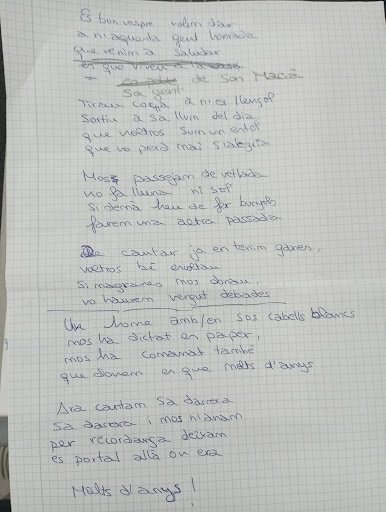 Es bon vespre volem dar
a n'aquesta gent honrada
que venim a saludar
es que viven a la casa
= de Son Macà
sa gent
Tirau coça a n'es llençol
Sortiu a sa llum del dia
que noltros sum un estol
que no perd mai s'alegria
Mos passejam de vetlada
no fa lluna ni sol
Si demà heu de fer bunyols
farem una altra passada
De cantar ja en tenim ganes,
voltros bé
Si magranes mos donau
no haurem vengut debades
Un home amb/en sos cabells blancs
mos ha dictat en paper,
mos ha comanat també
que diguem en que molts d'anys
Ara cantam sa darrera
Sa darrera i mos n'anam
per recordança deixam
es portal allà on era
Molts d'anys!